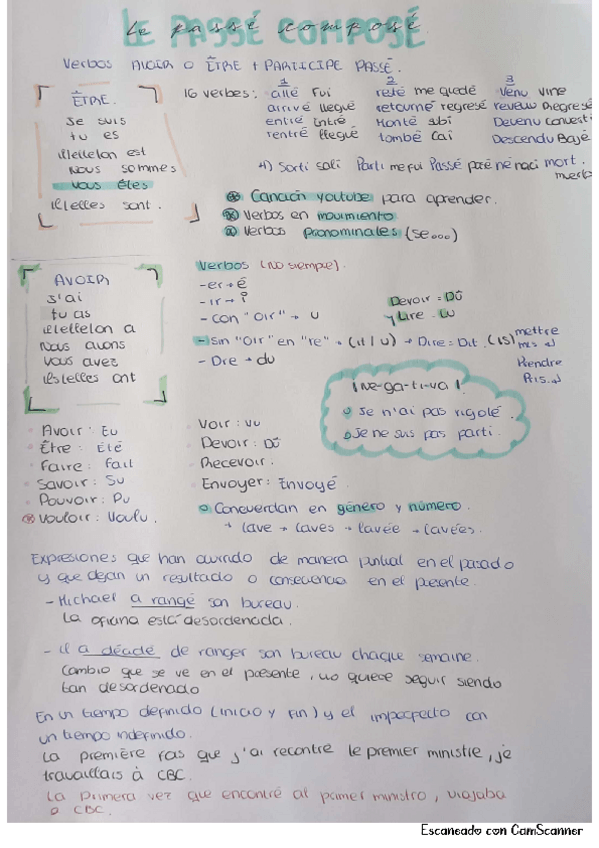 Le passé composé
LE PASSÉ COMPOSÉ
Verbos AVOIR o ÊTRE + PARTICIPE PASSÉ.
ÊTRE.
Je suis
tu es
il/elle/on est
Nous sommes
Vous êtes
il/elles sont.
16 verbes:
1
allé fui
arrivé llegué
entré Entré
rentré llegué
2
resté me quedé
retourné regresé
Monté subí
tombé Caí
3
Venu vine
revenu Regresé
Devenu Convertí
Descendu Bajé
4) Sorti salí Parti me fui Passé pasé né nací mort. muerto
Canción youtube para aprender.
Verbos en movimiento
Verbos pronominales (se...)
AVOIR
J'ai
tu as
il/elle/on a
Nous avons
Vous avez
ils/elles ont
Verbos (no siempre).
-er → é
-ir → i
- con "oir" → u
- sin "oir" en "re" → (it / u) → Dire = Dit. (is) mettre
mis
Prendre
Pris
- Dre → du
Devoir = Dû
y Lire - Lu
¡Ne-ga-ti-va!
Je n'ai pas rigolé.
Je ne suis pas parti.
Avoir: Eu
Être: Été
Faire: Fait
Savoir: Su
Pouvoir: Pu
Vouloir: Voulu.
Voir: Vu
Devoir: Dû
Recevoir.
Envoyer: Envoyé.
Concuerdan en género y número.
→ lave → laves → lavée → lavées.
Expresiones que han ocurrido de manera puntual en el pasado
y que dejan un resultado o consecuencia en el presente.
- Michael a rangé son bureau.
La oficina está desordenada.
- il a décidé de ranger son bureau chaque semaine.
Cambio que se ve en el presente, no quiere seguir siendo
tan desordenado
En un tiempo definido (inicio y fin) y el imperfecto con
un tiempo indefinido.
La première fois que j'ai recontré le premier ministre, je
travaillais à CBC.
La primera vez que encontré al primer ministro, viajaba
a CBC.
Escaneado con CamScanner